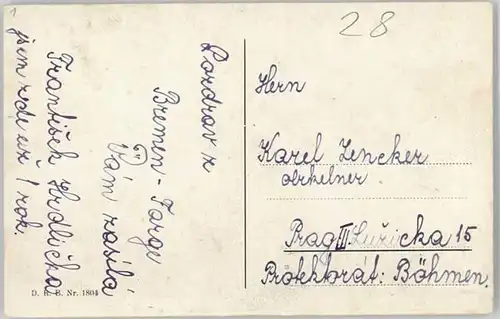 28
1
Pozdrav z
Bremen-Farge
Vám zasílá
František Hrdlička
jsem zde už 1 rok.
Herrn
Karel Zencker
obrkelner.
Prag III Lužická 15
Protektorát: Böhmen.
D. R. B. Nr. 1804